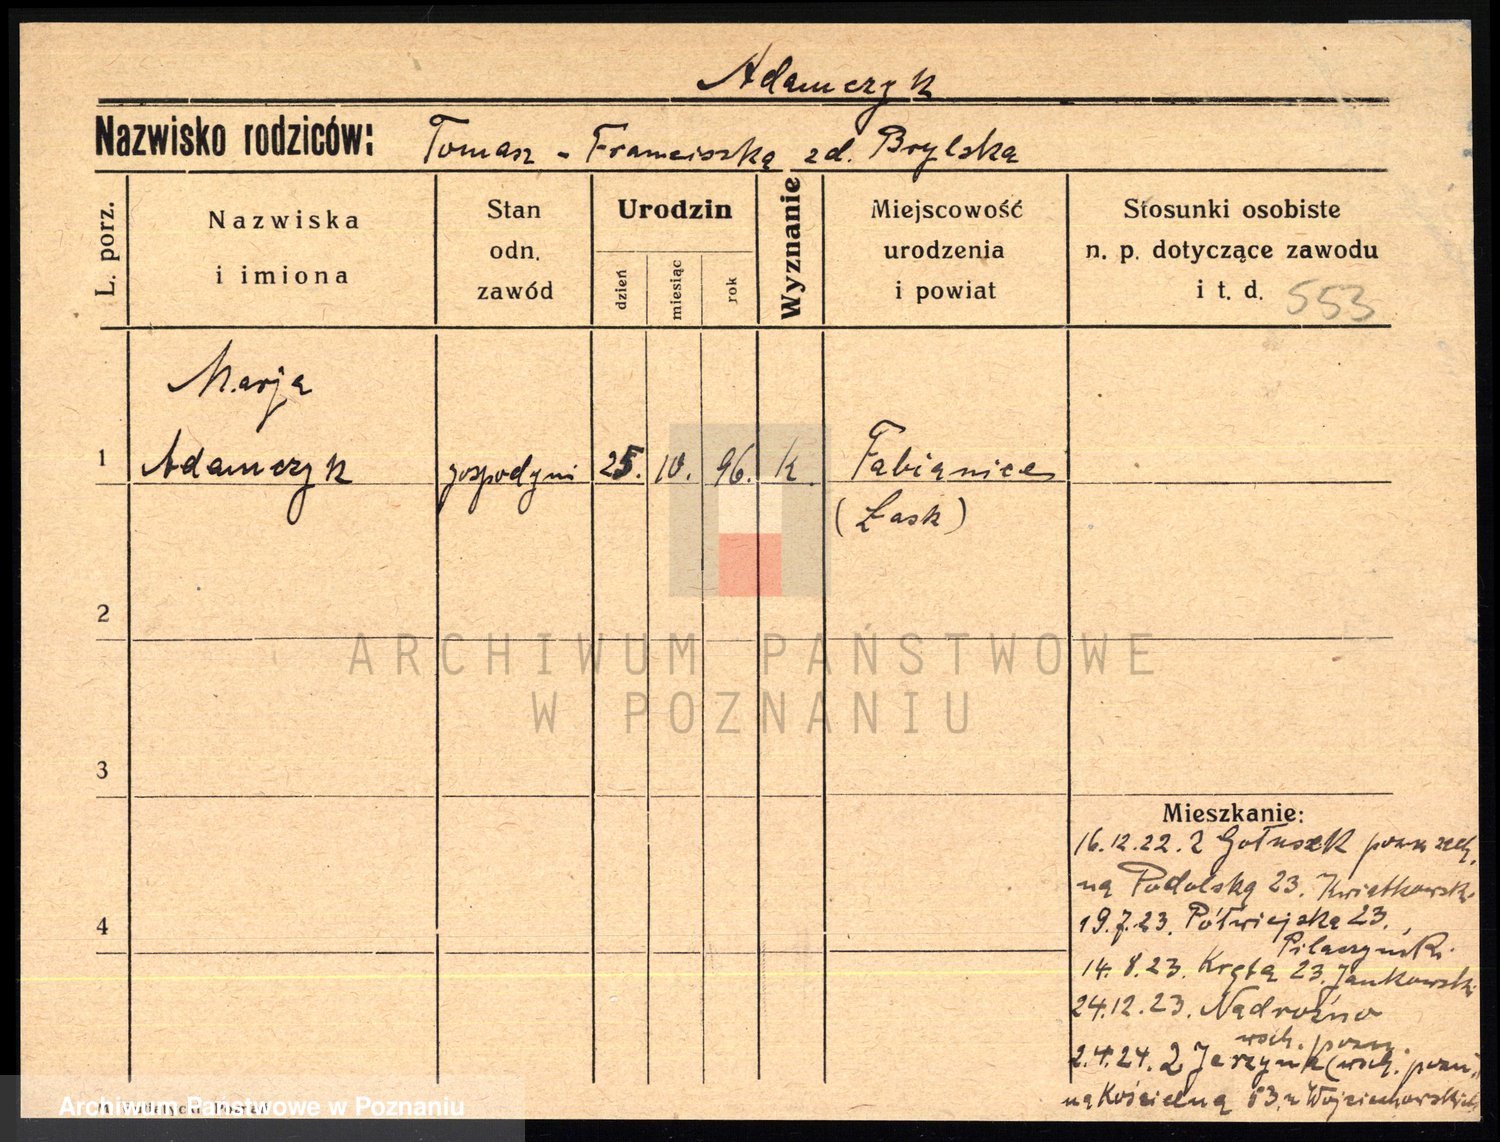 Adamczyk
Nazwisko rodziców: Tomasz - Franciszka zd. Brylska
L. porz.
Nazwiska
i imiona
Stan
odn.
zawód
Urodzin
dzień
miesiąc
rok
Wyznanie
Miejscowość
urodzenia
i powiat
Stosunki osobiste
n. p. dotyczące zawodu
i t. d.
553
Marja
1 Adamczyk gospodyni 25. 10. 96. k. Pabianice
(Łask)
2
ARCHIWUM PAŃSTWOWE
W POZNANIU
3
4
Mieszkanie:
16.12.22. z Gołuszek
na Podolską 23. Kwiatkowski
19.7.23. Półwiejska 23.
14.8.23. Kręta 23. Jankowski
24.12.23. Nadrożno
wsch. pozn.
2.4.24. z Jerzyna (wsch. pozn.)
na Kościelną 53. u Wojciechowskich
Archiwum Państwowe w Poznaniu